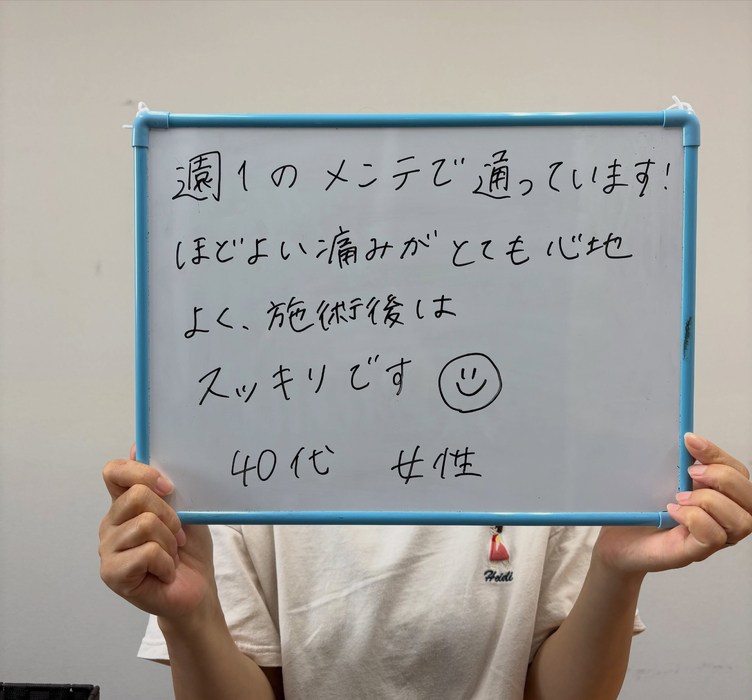 週1のメンテで通っています!
ほどよい痛みがとても心地
よく、施術後は
スッキリです
40代 女性
Heidi